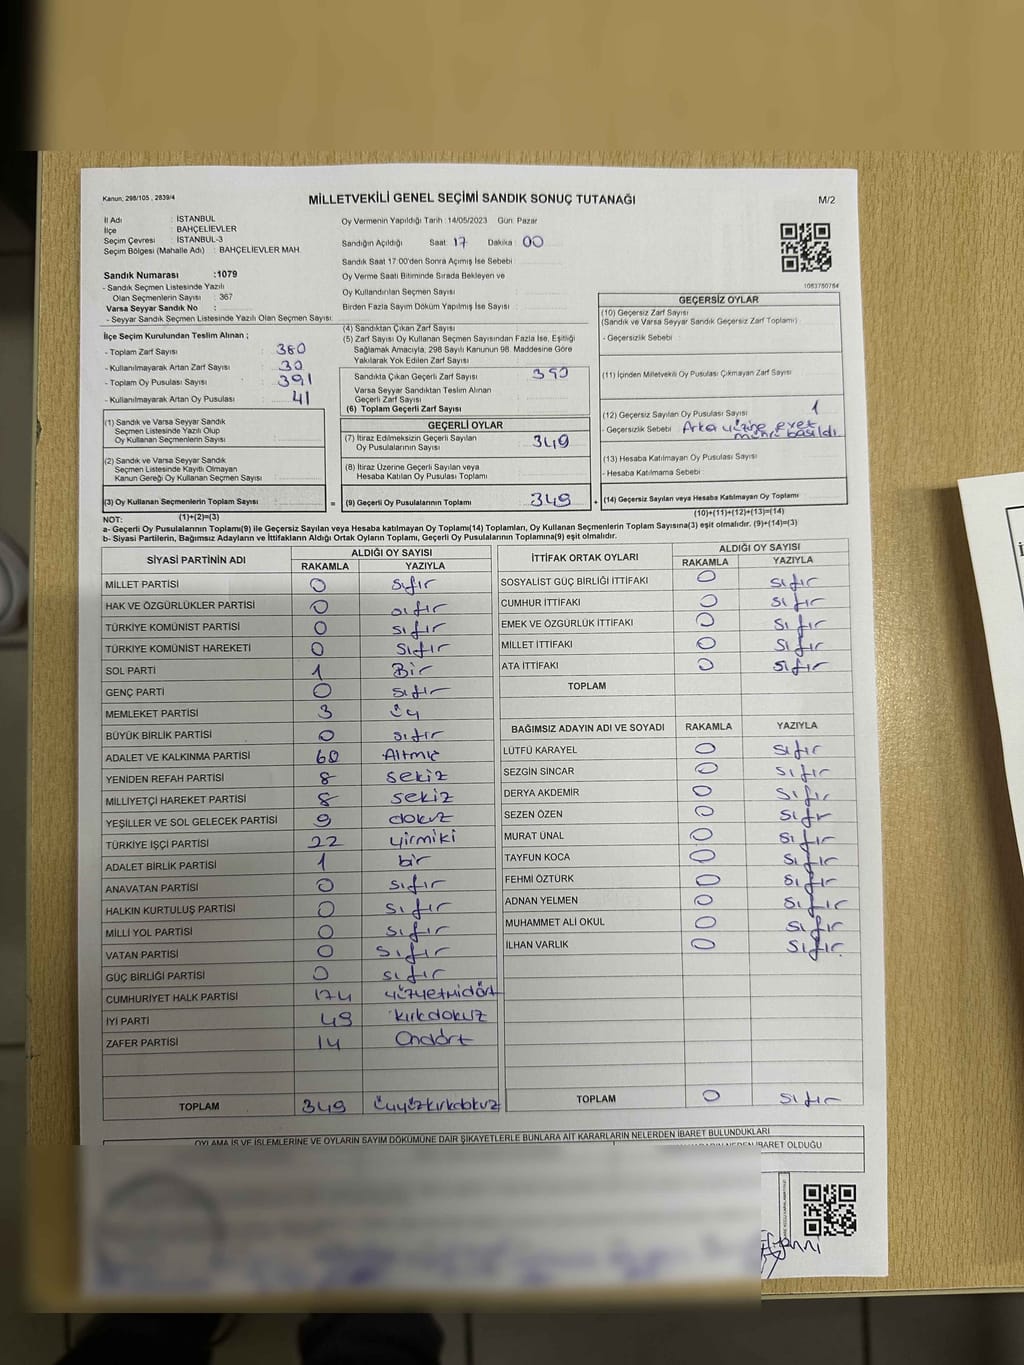 Kanun; 298/105 , 2839/4
MİLLETVEKİLİ GENEL SEÇİMİ SANDIK SONUÇ TUTANAĞI
M/2
İl Adı : İSTANBUL
İlçe : BAHÇELİEVLER
Seçim Çevresi : İSTANBUL-3
Seçim Bölgesi (Mahalle Adı) : BAHÇELİEVLER MAH.
Oy Vermenin Yapıldığı Tarih : 14/05/2023 Gün: Pazar
Sandığın Açıldığı Saat 17 Dakika : 00
Sandık Saat 17:00'den Sonra Açımış İse Sebebi :
Oy Verme Saati Bitiminde Sırada Bekleyen ve
Oy Kullandırılan Seçmen Sayısı :
Birden Fazla Sayım Döküm Yapılmış İse Sayısı :
1083760764
Sandık Numarası :1079
- Sandık Seçmen Listesinde Yazılı
Olan Seçmenlerin Sayısı : 367
Varsa Seyyar Sandık No :
- Seyyar Sandık Seçmen Listesinde Yazılı Olan Seçmen Sayısı:
İlçe Seçim Kurulundan Teslim Alınan ;
- Toplam Zarf Sayısı : 380
- Kullanılmayarak Artan Zarf Sayısı : 30
- Toplam Oy Pusulası Sayısı : 391
- Kullanılmayarak Artan Oy Pusulası : 41
(1) Sandık ve Varsa Seyyar Sandık
Seçmen Listesinde Yazılı Olup
Oy Kullanan Seçmenlerin Sayısı :
(2) Sandık ve Varsa Seyyar Sandık
Seçmen Listesinde Kayıtlı Olmayan
Kanun Gereği Oy Kullanan Seçmen Sayısı :
(3) Oy Kullanan Seçmenlerin Toplam Sayısı :
(1)+(2)=(3)
(4) Sandıktan Çıkan Zarf Sayısı :
(5) Zarf Sayısı Oy Kullanan Seçmen Sayısından Fazla İse, Eşitliği
Sağlamak Amacıyla, 298 Sayılı Kanunun 98. Maddesine Göre
Yakılarak Yok Edilen Zarf Sayısı :
Sandıkta Çıkan Geçerli Zarf Sayısı :
Varsa Seyyar Sandıktan Teslim Alınan
Geçerli Zarf Sayısı :
(6) Toplam Geçerli Zarf Sayısı :
GEÇERLİ OYLAR
(7) İtiraz Edilmeksizin Geçerli Sayılan
Oy Pusulalarının Sayısı : 349
(8) İtiraz Üzerine Geçerli Sayılan veya
Hesaba Katılan Oy Pusulası Toplamı :
= (9) Geçerli Oy Pusulalarının Toplamı : 349 +
GEÇERSİZ OYLAR
(10) Geçersiz Zarf Sayısı
(Sandık ve Varsa Seyyar Sandık Geçersiz Zarf Toplamı) :
- Geçersizlik Sebebi :
(11) İçinden Milletvekili Oy Pusulası Çıkmayan Zarf Sayısı :
(12) Geçersiz Sayılan Oy Pusulası Sayısı : 1
- Geçersizlik Sebebi : Arka yüzüne evet
mührü basıldı
(13) Hesaba Katılmayan Oy Pusulası Sayısı :
- Hesaba Katılmama Sebebi :
(14) Geçersiz Sayılan veya Hesaba Katılmayan Oy Toplamı :
(10)+(11)+(12)+(13)=(14)
NOT:
a- Geçerli Oy Pusulalarının Toplamı(9) ile Geçersiz Sayılan veya Hesaba katılmayan Oy Toplamı(14) Toplamları, Oy Kullanan Seçmenlerin Toplam Sayısına(3) eşit olmalıdır. (9)+(14)=(3)
b- Siyasi Partilerin, Bağımsız Adayların ve İttifakların Aldığı Ortak Oyların Toplamı, Geçerli Oy Pusulalarının Toplamına(9) eşit olmalıdır.
SİYASİ PARTİNİN ADI ALDIĞI OY SAYISI
RAKAMLA YAZIYLA
MİLLET PARTİSİ 0 sıfır
HAK VE ÖZGÜRLÜKLER PARTİSİ 0 sıfır
TÜRKİYE KOMÜNİST PARTİSİ 0 sıfır
TÜRKİYE KOMÜNİST HAREKETİ 0 sıfır
SOL PARTİ 1 Bir
GENÇ PARTİ 0 sıfır
MEMLEKET PARTİSİ 3 üç
BÜYÜK BİRLİK PARTİSİ 0 sıfır
ADALET VE KALKINMA PARTİSİ 60 Altmış
YENİDEN REFAH PARTİSİ 8 sekiz
MİLLİYETÇİ HAREKET PARTİSİ 8 sekiz
YEŞİLLER VE SOL GELECEK PARTİSİ 9 dokuz
TÜRKİYE İŞÇİ PARTİSİ 22 yirmiki
ADALET BİRLİK PARTİSİ 1 bir
ANAVATAN PARTİSİ 0 sıfır
HALKIN KURTULUŞ PARTİSİ 0 sıfır
MİLLİ YOL PARTİSİ 0 sıfır
VATAN PARTİSİ 0 sıfır
GÜÇ BİRLİĞİ PARTİSİ 0 sıfır
CUMHURİYET HALK PARTİSİ 174 yüzyetmidört
İYİ PARTİ 49 kırkdokuz
ZAFER PARTİSİ 14 Ondört
TOPLAM 349 üçyüzkırkdokuz
İTTİFAK ORTAK OYLARI ALDIĞI OY SAYISI
RAKAMLA YAZIYLA
SOSYALİST GÜÇ BİRLİĞİ İTTİFAKI 0 sıfır
CUMHUR İTTİFAKI 0 sıfır
EMEK VE ÖZGÜRLÜK İTTİFAKI 0 sıfır
MİLLET İTTİFAKI 0 sıfır
ATA İTTİFAKI 0 sıfır
TOPLAM
BAĞIMSIZ ADAYIN ADI VE SOYADI RAKAMLA YAZIYLA
LÜTFÜ KARAYEL 0 sıfır
SEZGİN SİNCAR 0 sıfır
DERYA AKDEMİR 0 sıfır
SEZEN ÖZEN 0 sıfır
MURAT ÜNAL 0 sıfır
TAYFUN KOCA 0 sıfır
FEHMİ ÖZTÜRK 0 sıfır
ADNAN YELMEN 0 sıfır
MUHAMMET ALİ OKUL 0 sıfır
İLHAN VARLIK 0 sıfır
TOPLAM 0 sıfır
OYLAMA İŞ VE İŞLEMLERİNE VE OYLARIN SAYIM DÖKÜMÜNE DAİR ŞİKAYETLERLE BUNLARA AİT KARARLARIN NELERDEN İBARET BULUNDUKLARI
NEDEN İBARET OLDUĞU